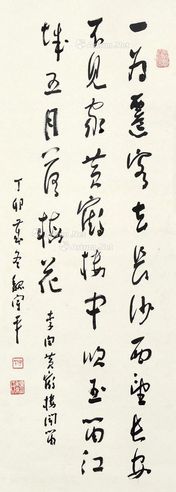 一为迁客去长沙西望长安
不见家黄鹤楼中吹玉笛江
城五月落梅花
李白黄鹤楼闻笛
丁卯岁冬魏宇平